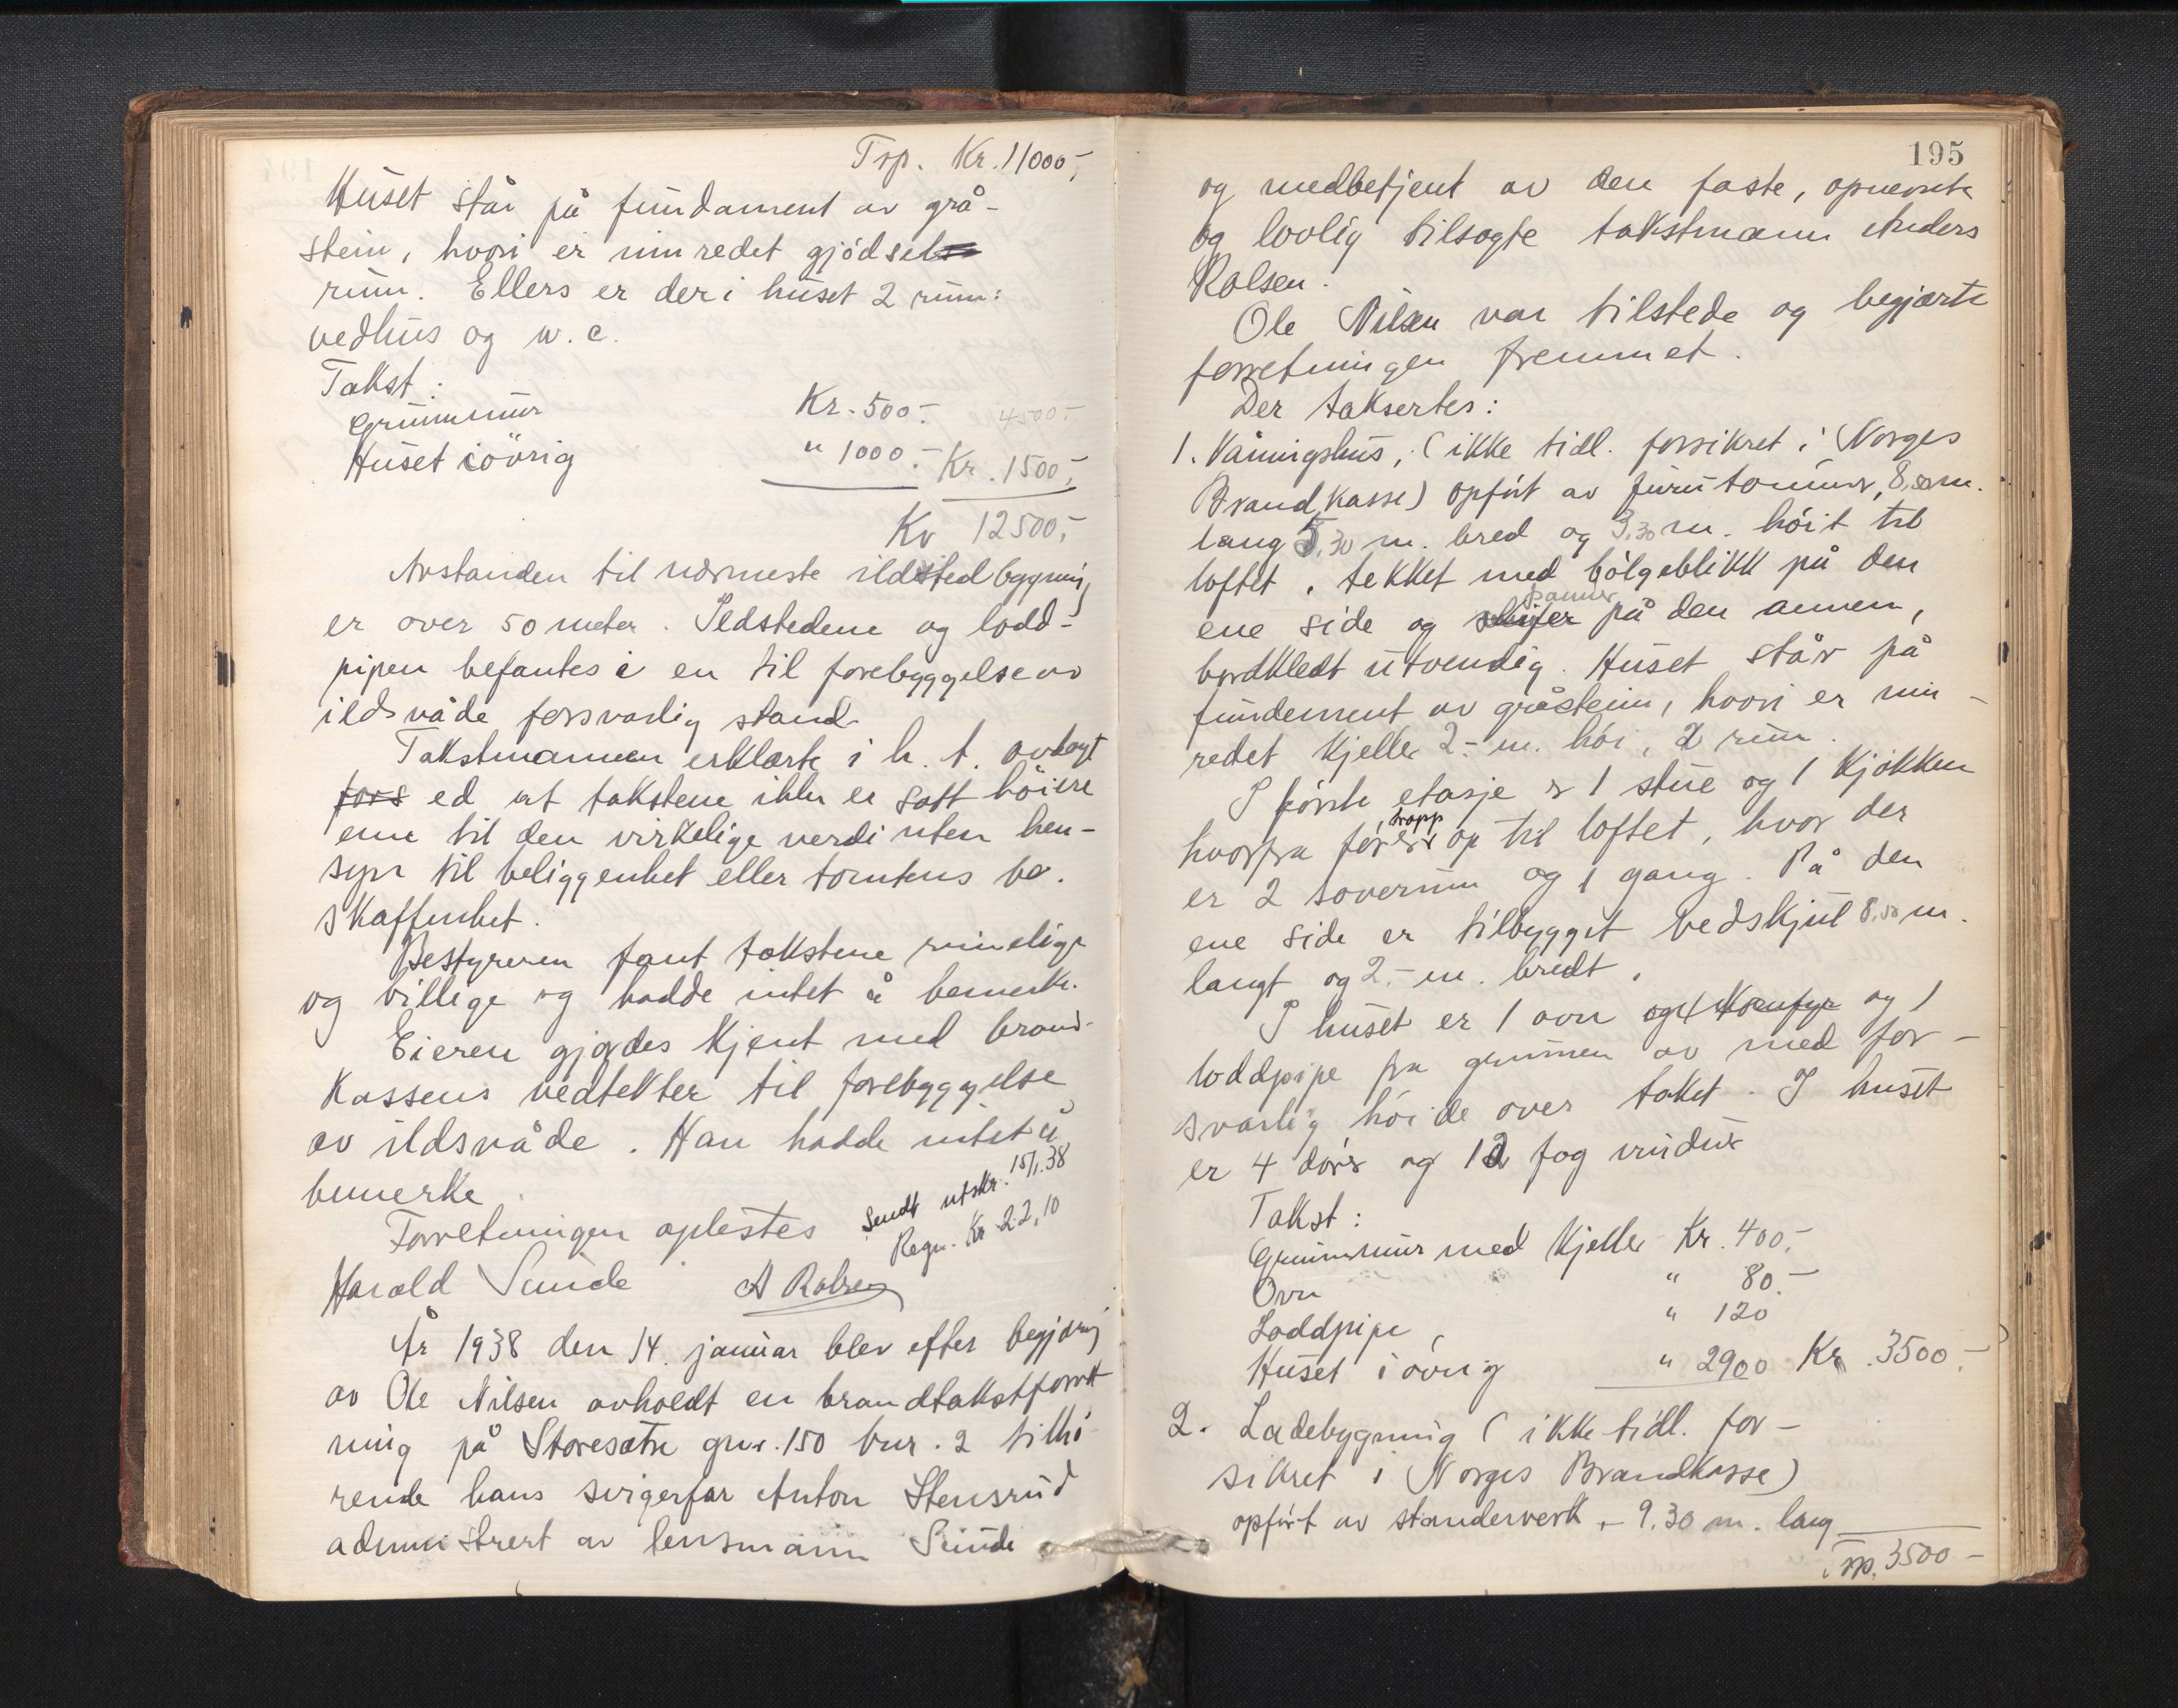 Trsp. Kr. 11000,-
Huset står på fundament av grå-
stein, hvori er innredet gjødsel
rum. Ellers er der i huset 2 rum:
vedhus og w.c.
Takst:
Grunnmur Kr. 500.- 4500,-
Huset iövrig " 1000.- Kr. 1500,-
Kr 12500,-
Avstanden til nærmeste ildstedbygning
er over 50 meter. Ildstedene og lodd-
pipen befantes i en til forebyggelse av
ildsvåde forsvarlig stand.
Takstmannen erklærte i h. t. avlagt
fors ed at takstene ikke er satt höiere
enn til den virkelige verdi uten hen-
syn til beliggenhet eller tomtens be-
skaffenhet.
Bestyreren fant takstene rimelige
og villige og hadde intet å bemerke.
Eieren gjordes kjent med brand-
kassens vedtekter til forebyggelse
av ildsvåde. Han hadde intet å
bemerke.
Sendt utskr. 15/1.38
Regn. Kr 22,10
Forretningen oplestes
Harald Sunde A Rolsen
År 1938 den 14. januar blev efter begjæring
av Ole Nilsen avholdt en brandtakstforret
ning på Storesætre gnr. 150 bnr. 2 tilhö-
rende hans svigerfar Anton Stensrud
administrert av lensmann Sunde
195
og medbetjent av den faste, opnevnte
og lovlig tilsagte takstmann Anders
Rolsen.
Ole Nilsen var tilstede og begjærte
forretningen fremmet.
Der taksertes:
1. Våningshus, (ikke tidl. forsikret i Norges
Brandkasse) opfört av furutömmer, 8,50 m.
lang 5,30 m. bred og 3,30 m. höit til
loftet, tekket med bölgeblikk på den
panner
ene side og skifer på den annen,
bordkledt utvendig. Huset står på
fundement av gråstein, hvori er inn-
redet kjeller 2.- m. höi, 2 rum.
I förste etasje er 1 stue og 1 kjökken
trapp
hvorfra förer op til loftet, hvor der
er 2 soverum og 1 gang. På den
ene side er tilbygget vedskjul 8,50 m.
langt og 2.- m. bredt.
I huset er 1 ovn og 1 komfyr og 1
loddpipe fra grunnen av med for-
svarlig höide over taket. I huset
er 4 dörer og 12 fag vinduer
Takst:
Grunnmur med kjeller Kr. 400.-
Ovn " 80.-
Loddpipe " 120
Huset i övrig " 2900 Kr. 3500.-
2. Ladebygning (ikke tidl. for-
sikret i Norges Brandkasse)
opfört av standerverk, 9.30 m. lang
Trsp. 3500-